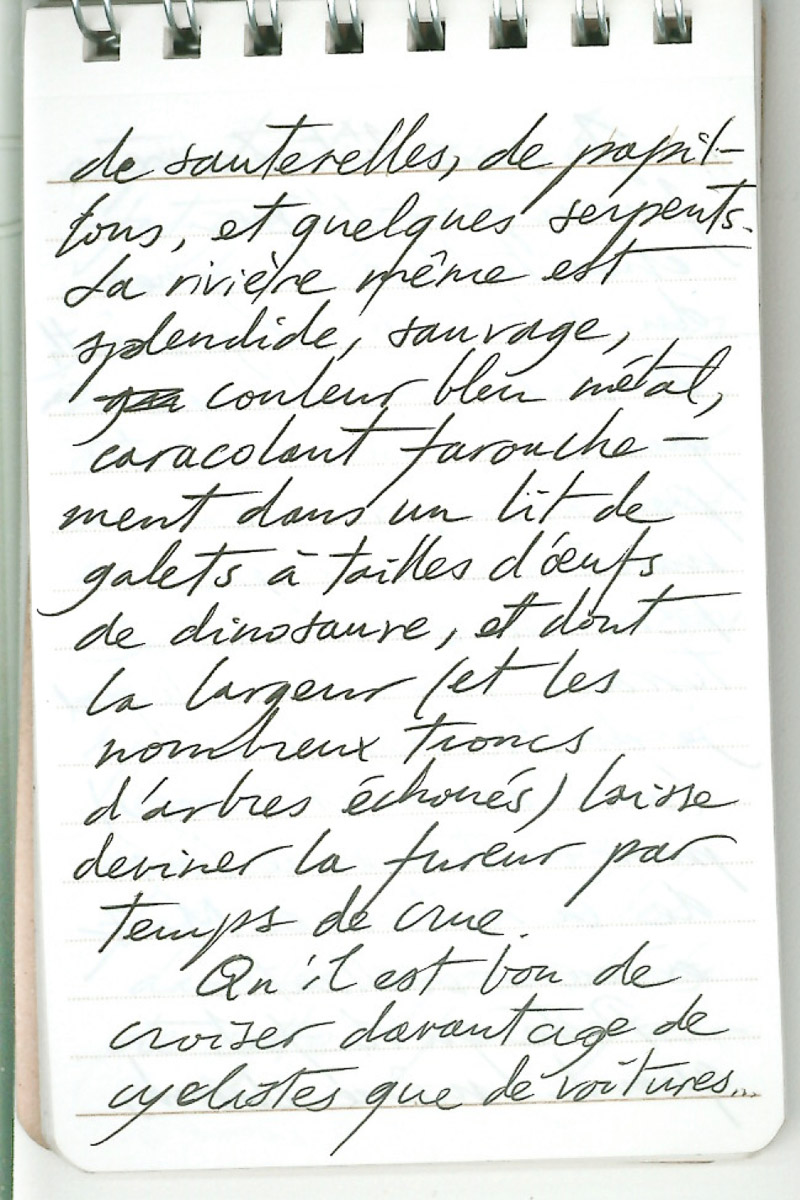 de sauterelles, de papil-
lons, et quelques serpents.
La rivière même est
splendide, sauvage,
couleur bleu métal,
caracolant farouche-
ment dans un lit de
galets à tailles d'œufs
de dinosaure, et dont
la largeur (et les
nombreux troncs
d'arbres échoués) laisse
deviner la fureur par
temps de crue.
Qu'il est bon de
croiser davantage de
cyclistes que de voitures...